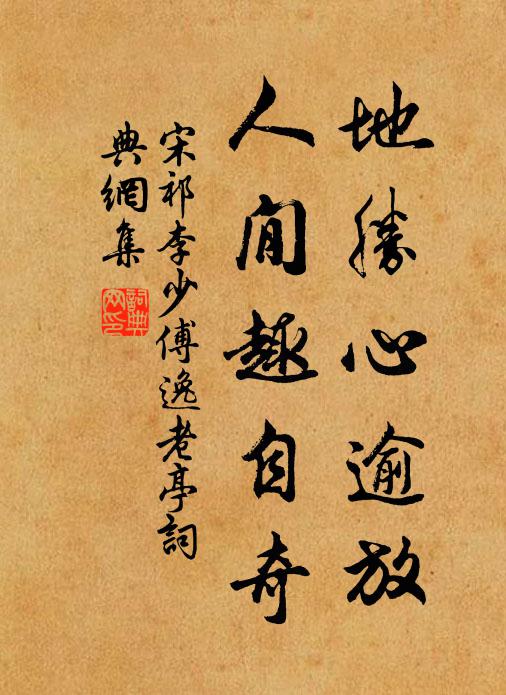 地勝心逾放
人閒趣自奇
宋祁李少傅逸老亭詞
典網集
詞典
网印